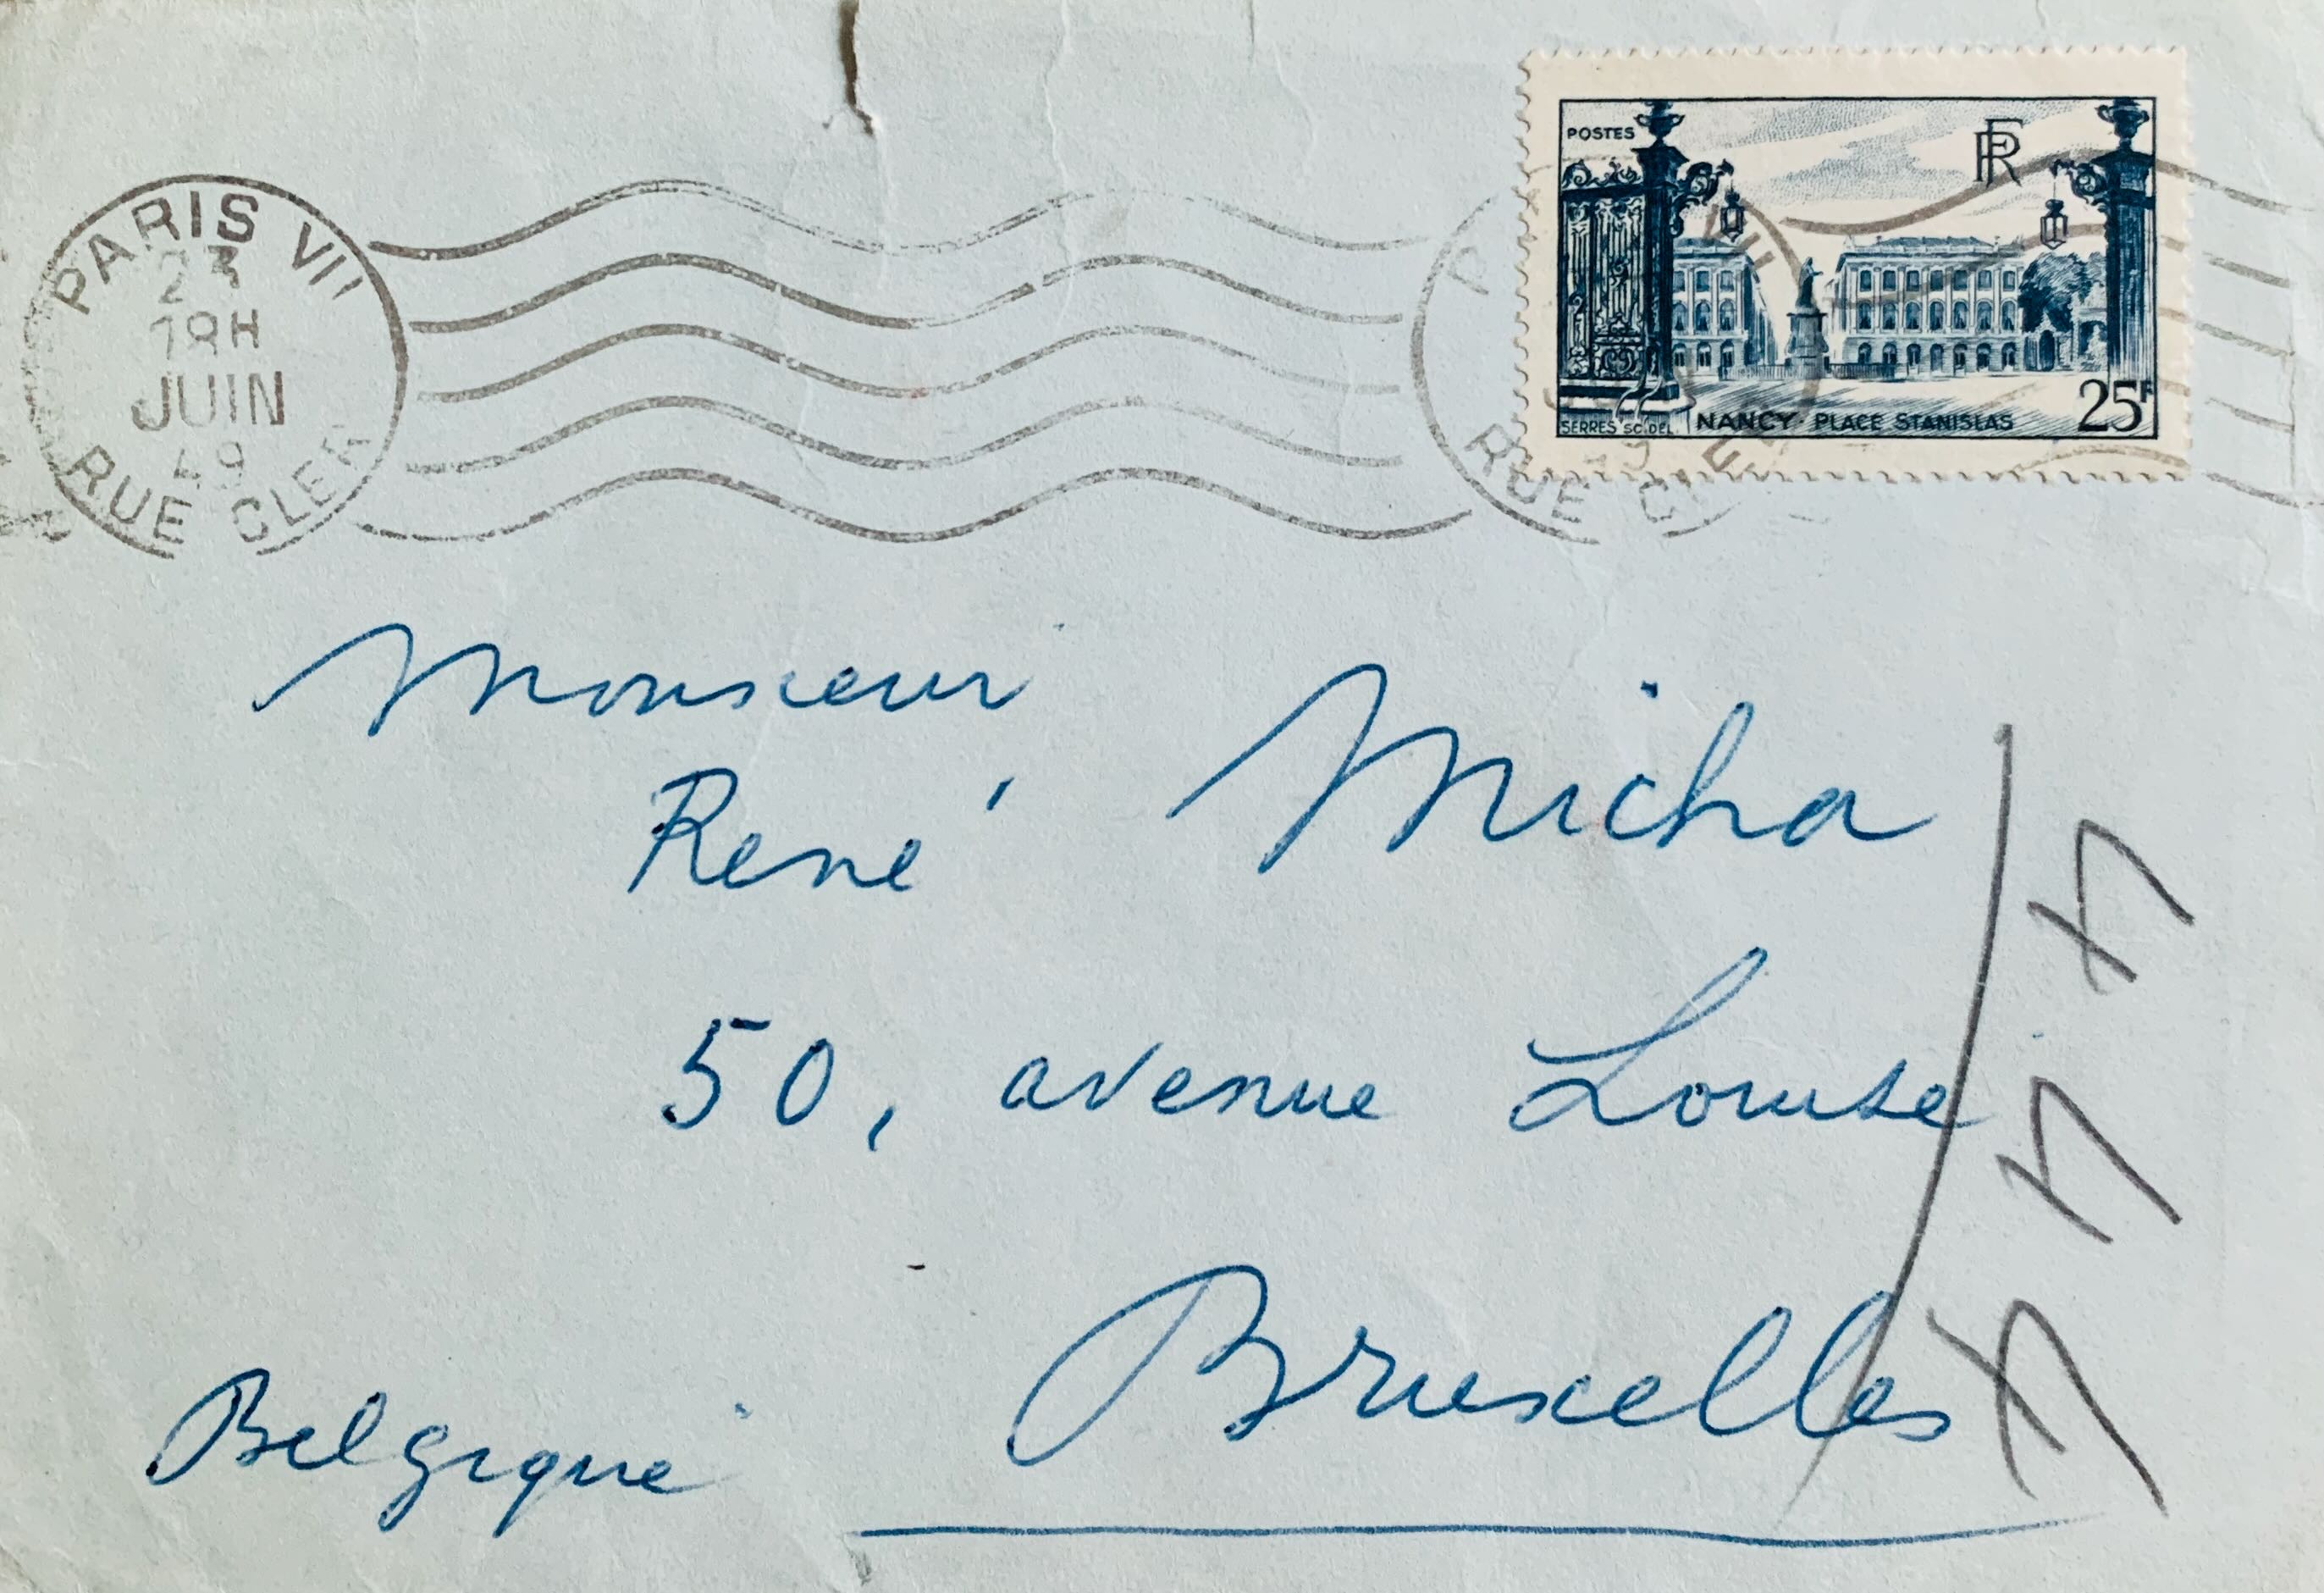 PARIS VII
23
19H
JUIN
49
RUE CLER
POSTES
RF
SERRES SC. DEL.
NANCY - PLACE STANISLAS
25F
VII
RUE CLER
Monsieur
René Micha
50, avenue Louise
Bruxelles
Belgique